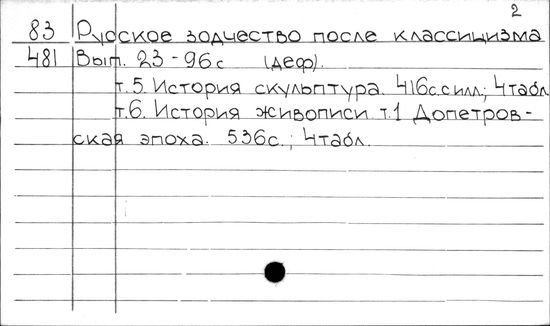 2
83 Русское зодчество после классицизма
481 Вып. 23 - 96 с (деф).
т.5. История скульптура. 416с.с илл.; 4табл
т.6. История живописи т.1 Допетров-
ская эпоха. 536с.; 4табл.